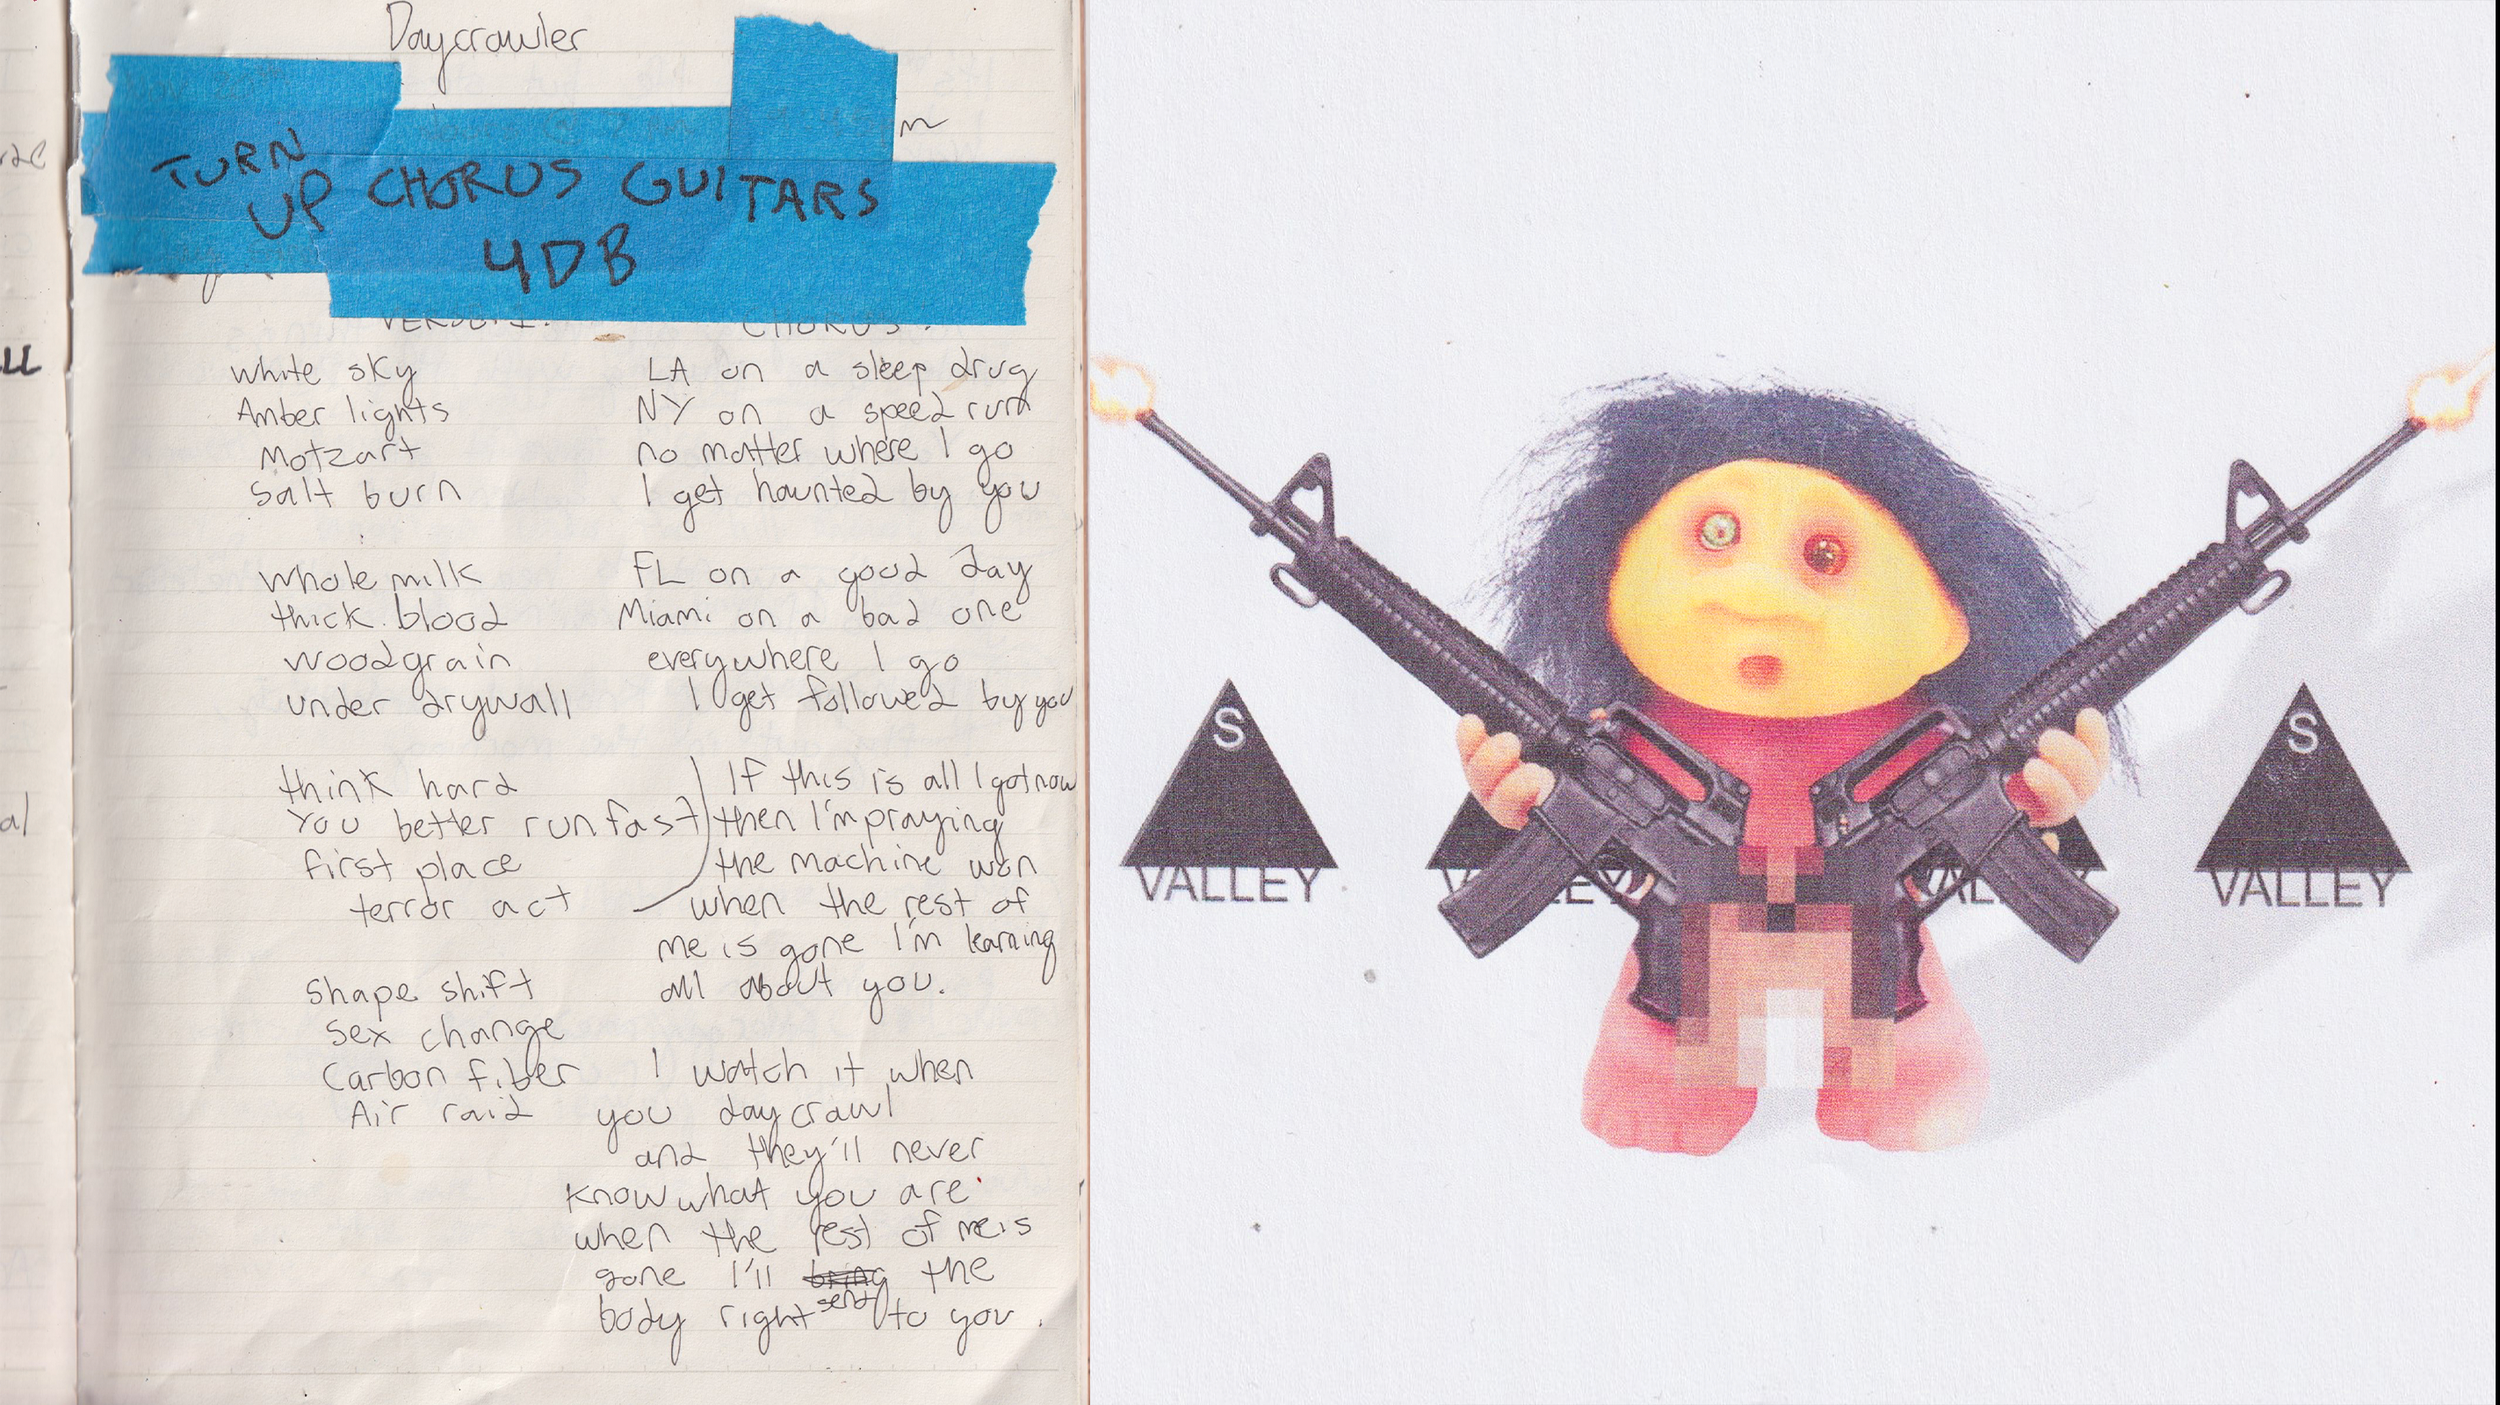 Daycrawler
TURN
UP CHORUS GUITARS
4DB
VERSE 1:
white sky
Amber lights
Motzart
salt burn
whole milk
thick blood
woodgrain
under drywall
think hard
you better run fast
first place
terror act
shape shift
sex change
Carbon fiber
Air raid
CHORUS:
LA on a sleep drug
NY on a speed run
no matter where I go
I get haunted by you
FL on a good day
Miami on a bad one
everywhere I go
I get followed by you
If this is all I got now
then I'm praying
the machine won
when the rest of
me is gone I'm learning
all about you.
I watch it when
you daycrawl
and they'll never
know what you are
when the rest of me is
gone I'll send the
body right to you.
S
VALLEY
S
VALLEY